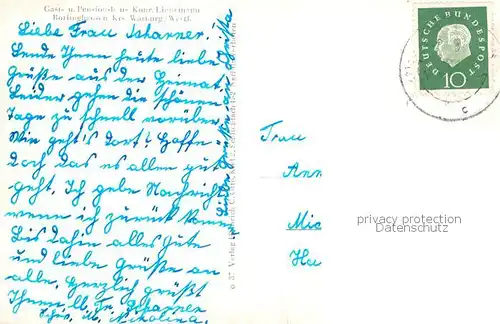 Gast- u. Pensionshaus Konr. Lienemann
Borlinghausen Krs. Warburg/Westf.
Liebe Frau Scharrer!
Sende Ihnen heute liebe
Grüße aus der Heimat.
Leider gehen die schönen
Tage zu schnell vorüber.
Wie geht's dort? Hoffe
doch das es allen gut
geht. Ich gebe Nachricht
wenn ich zurück komme
bis dahin alles Gute
und liebe Grüße an
alle. Herzlich grüßt
Ihnen
DEUTSCHE BUNDESPOST
10
c
Frau
Ann
Mic
Ha
privacy protection
Datenschutz